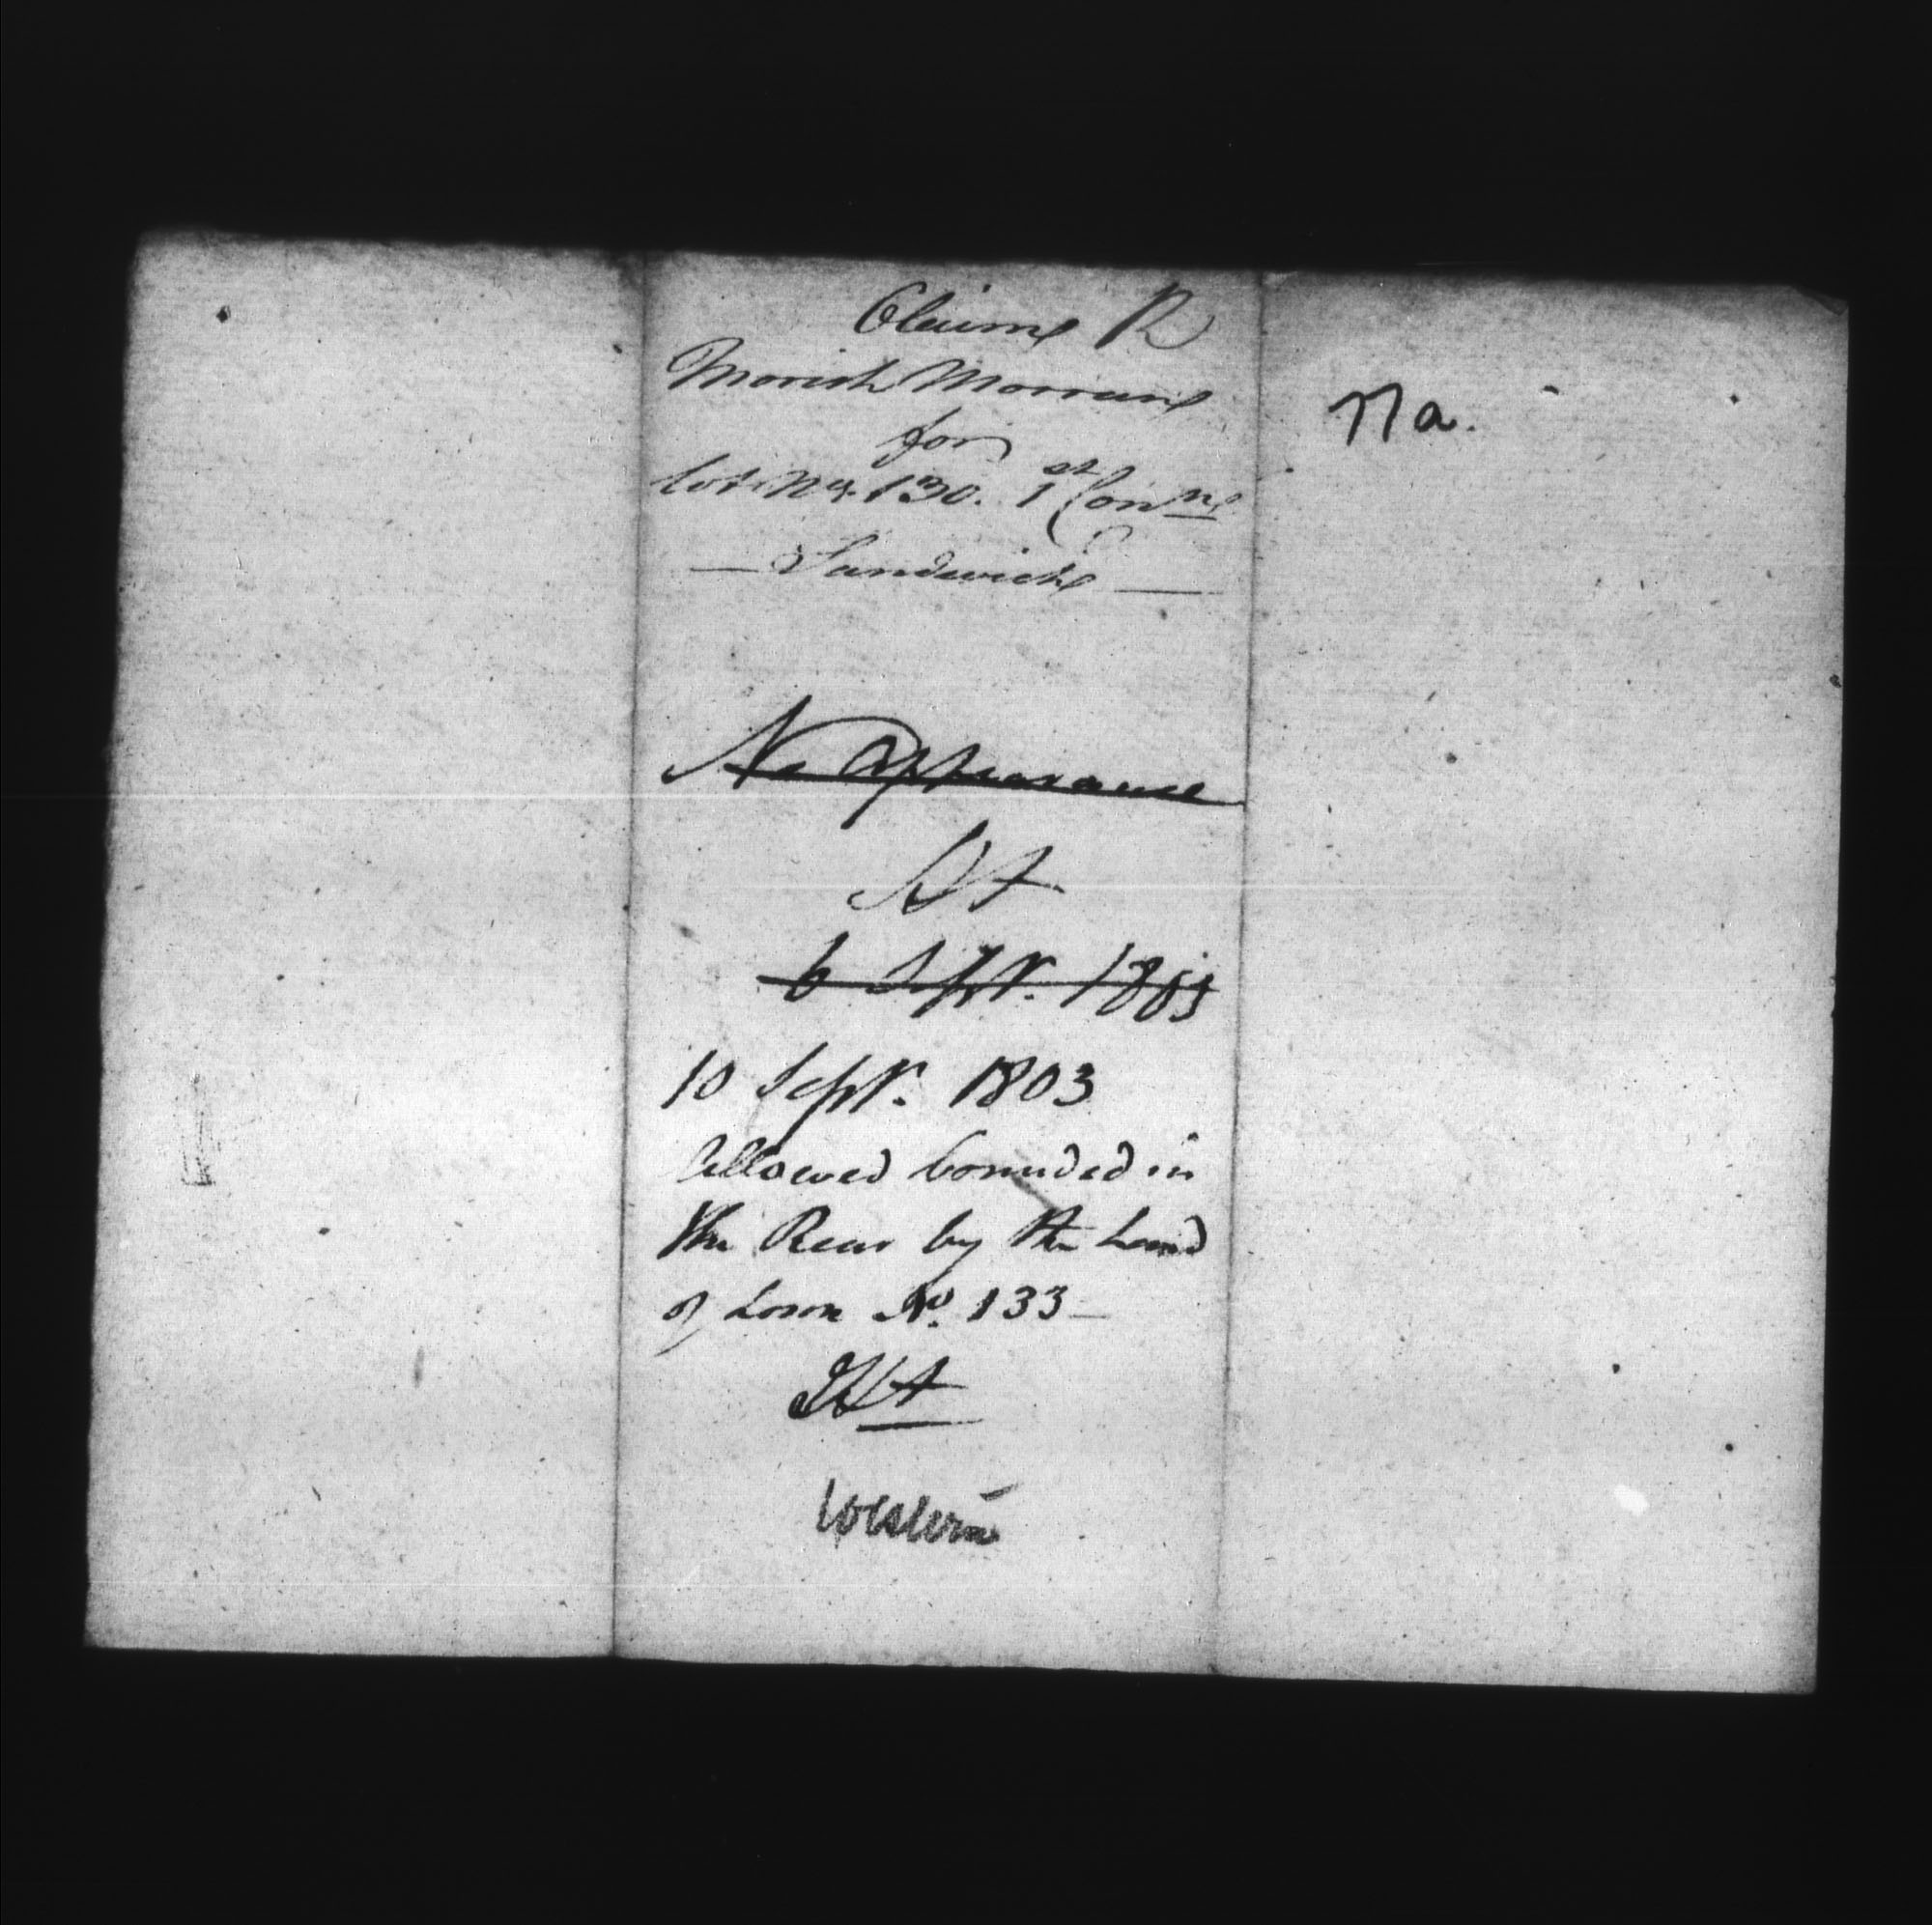 Claim R
Morish Morrand
for
lot No. 130. 1st Con ne
— Sandwich —
No Appearance
HA
6 Septr. 1803
10 Septr. 1803
Allowed bounded in
the Rear by the Land
of Lorn No. 133 —
HA
Western
77 a.